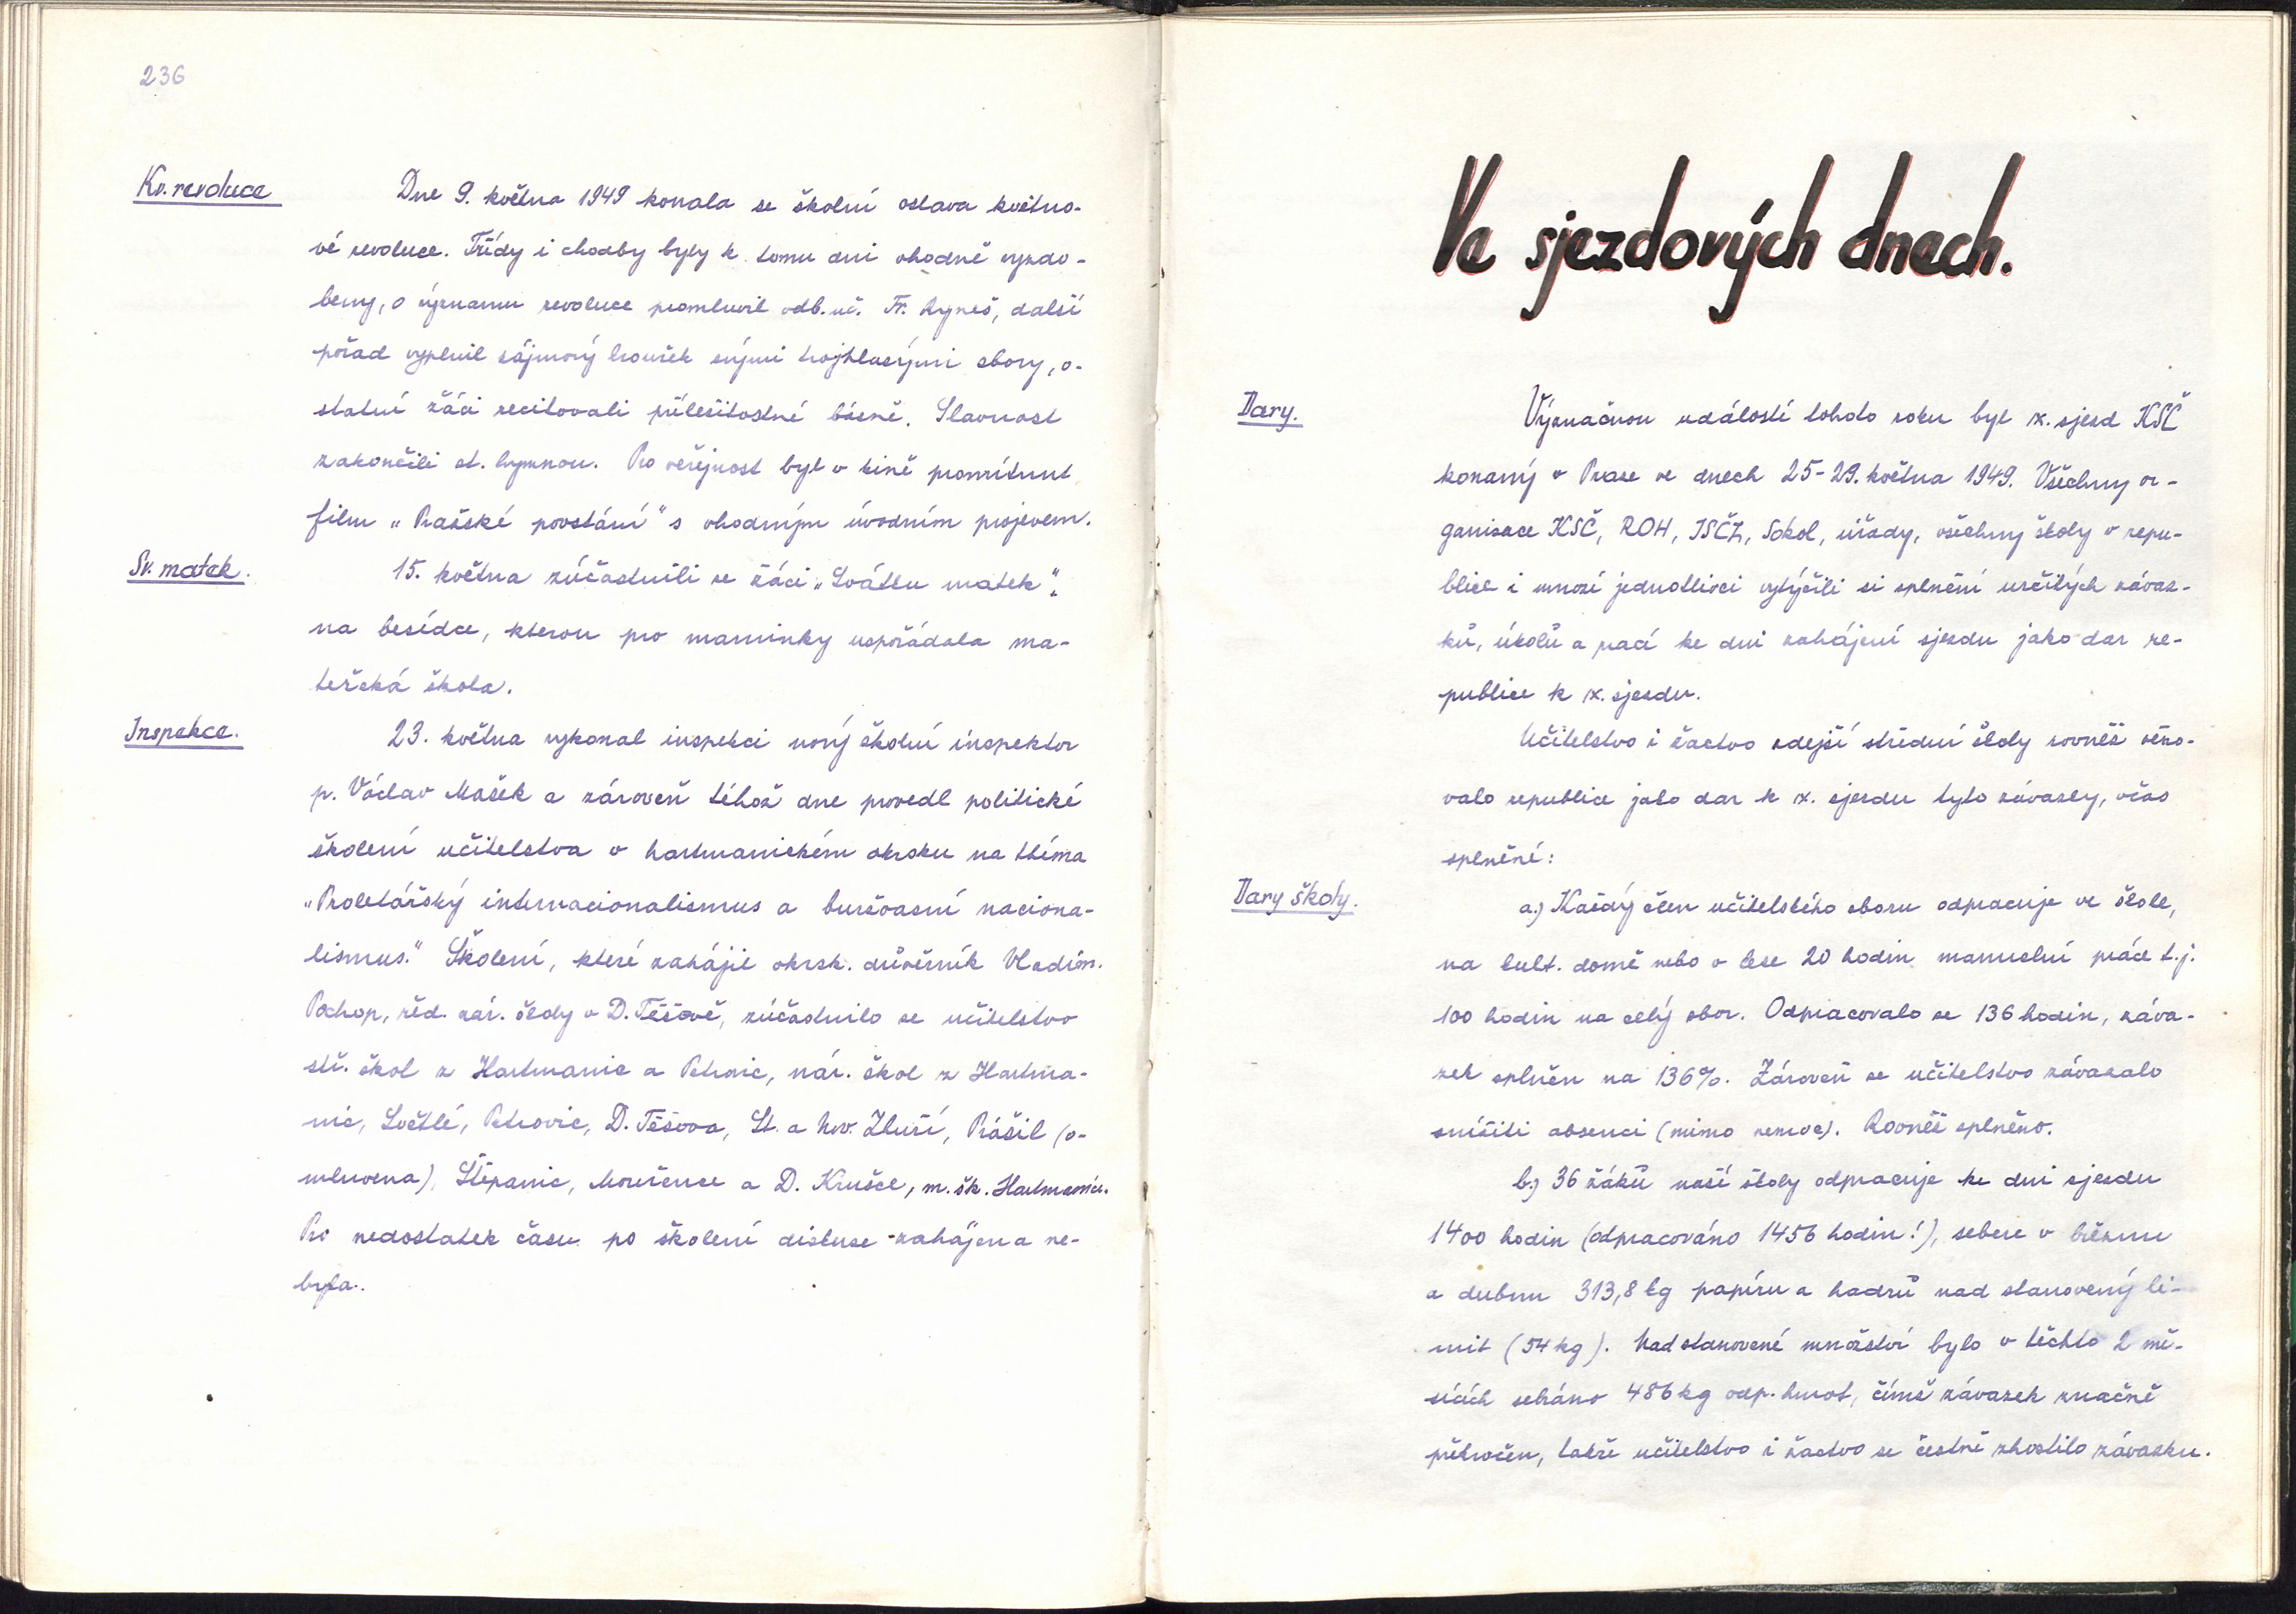 236
Kv. revoluce
Dne 9. května 1949 konala se školní oslava květno-
vé revoluce. Třídy i chodby byly k tomu dni vhodně vyzdo-
beny, o významu revoluce promluvil odb. uč. Fr. Hyneš, další
pořad vyplnil zájmový kroužek svými trojhlasými sbory, o-
statní žáci recitovali příležitostné básně. Slavnost
zakončili st. hymnou. Pro veřejnost byl v kině promítnut
film „Pražské povstání" s vhodným úvodním projevem.
Sv. matek.
15. května zúčastnili se žáci „Svátku matek".
na besídce, kterou pro maminky uspořádala ma-
teřská škola.
Inspekce.
23. května vykonal inspekci nový školní inspektor
p. Václav Mašek a zároveň téhož dne provedl politické
školení učitelstva v hartmanickém okrsku na théma
„Proletářský internacionalismus a buržoasní naciona-
lismus." Školení, které zahájil okrsk. důvěrník Vladim.
Pochop, řed. nár. školy v D. Těšově, zúčastnilo se učitelstvo
stř. škol z Hartmanic a Petrovic, nár. škol z Hartma-
nic, Světlé, Petrovic, D. Těšova, St. a Nov. Zhuří, Prášil (o-
mluvena), Štěpanic, Mouřence a D. Krušce, m. šk. Hartmanice.
Pro nedostatek času po školení diskuse zahájena ne-
byla.
Ve sjezdových dnech.
Dary.
Význačnou událostí tohoto roku byl IX. sjezd KSČ
konaný v Praze ve dnech 25-29. května 1949. Všechny or-
ganisace KSČ, ROH, JSČZ, Sokol, úřady, všechny školy v repu-
blice i mnozí jednotlivci vytýčili si splnění určitých závaz-
ků, úkolů a prací ke dni zahájení sjezdu jako dar re-
publice k IX. sjezdu.
Učitelstvo i žactvo zdejší střední školy rovněž věno-
valo republice jako dar k IX. sjezdu tyto závazky, včas
splněné:
Dary školy.
a.) Každý člen učitelského sboru odpracuje ve škole,
na kult. domě nebo v lese 20 hodin manuelní práce t.j.
100 hodin na celý sbor. Odpracovalo se 136 hodin, záva-
zek splněn na 136%. Zároveň se učitelstvo zavázalo
snížiti absenci (mimo nemoc). Rovněž splněno.
b.) 36 žáků naší školy odpracuje ke dni sjezdu
1400 hodin (odpracováno 1456 hodin!), sebere v březnu
a dubnu 313,8 kg papíru a hadrů nad stanovený li-
mit (54 kg). Nad stanovené množství bylo v těchto 2 mě-
sících sebráno 486 kg odp. hmot, čímž závazek značně
překročen, takže učitelstvo i žactvo se čestně zhostilo závazku.